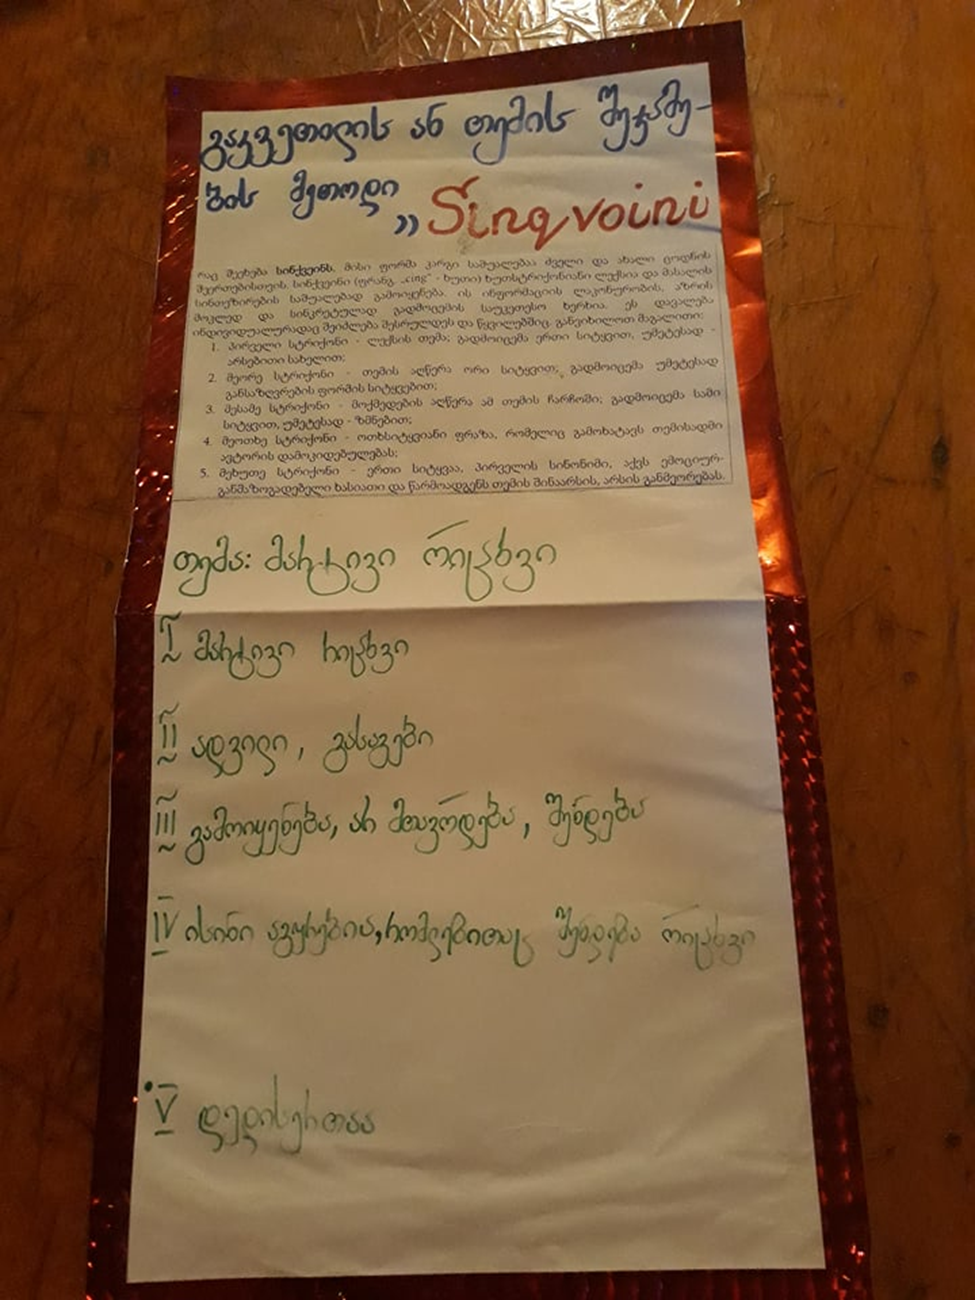 გაკვეთილის ან თემის შეჯამე-
ბის მეთოდი „Sinqvoini
რაც შეეხება სინქვეინს, მისი ფორმა კარგი საშუალებაა ძველი და ახალი ცოდნის
შეერთებისთვის. სინქვეინი (ფრანგ. „cinq" - ხუთი) ხუთსტრიქონიანი ლექსია და მასალის
სინთეზირების საშუალებად გამოიყენება. ის ინფორმაციის ლაკონურობის, აზრის
მოკლედ და სინკრეტულად გადმოცემის საუკეთესო ხერხია. ეს დავალება
ინდივიდუალურადაც შეიძლება შესრულდეს და წყვილებშიც. განვიხილოთ მაგალითი:
1. პირველი სტრიქონი - ლექსის თემა; გადმოიცემა ერთი სიტყვით, უმეტესად -
არსებითი სახელით;
2. მეორე სტრიქონი - თემის აღწერა ორი სიტყვით; გადმოიცემა უმეტესად
განსაზღვრების ფორმის სიტყვებით;
3. მესამე სტრიქონი - მოქმედების აღწერა ამ თემის ჩარჩოში; გადმოიცემა სამი
სიტყვით, უმეტესად - ზმნებით;
4. მეოთხე სტრიქონი - ოთხსიტყვიანი ფრაზა, რომელიც გამოხატავს თემისადმი
ავტორის დამოკიდებულებას;
5. მეხუთე სტრიქონი - ერთი სიტყვაა, პირველის სინონიმი, აქვს ემოციურ-
განმაზოგადებელი ხასიათი და წარმოადგენს თემის შინაარსის, არსის განმეორებას.
თემა: მარტივი რიცხვი
I მარტივი რიცხვი
II ადვილი, გასაგები
III გამოიყენება, არ მთავრდება, შენდება
IV ისინი აგურებია, რომლებითაც შენდება რიცხვი
V დედისერთაა